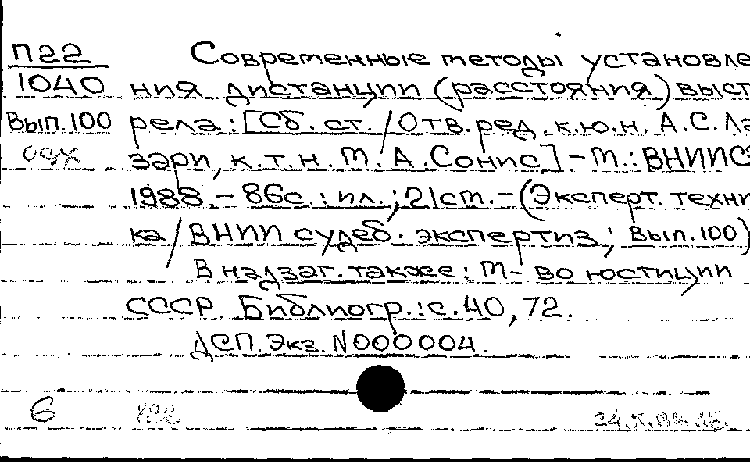 П22
1040
Вып.100
Современные методы установле
ния дистанции (расстояния) выст
рела: [Сб. ст./Отв. ред. к.ю.н. А.С. Ла
зари, к.т.н. М.А. Сонис] - М.: ВНИИС
1988. - 86с.: ил.; 21см. - (Эксперт. техни
ка/ВНИИ судеб. экспертиз; Вып.100)
В надзаг. также: М-во юстиции
СССР. Библиогр.: с.40, 72.
ДСП. Экз. N000004.
6